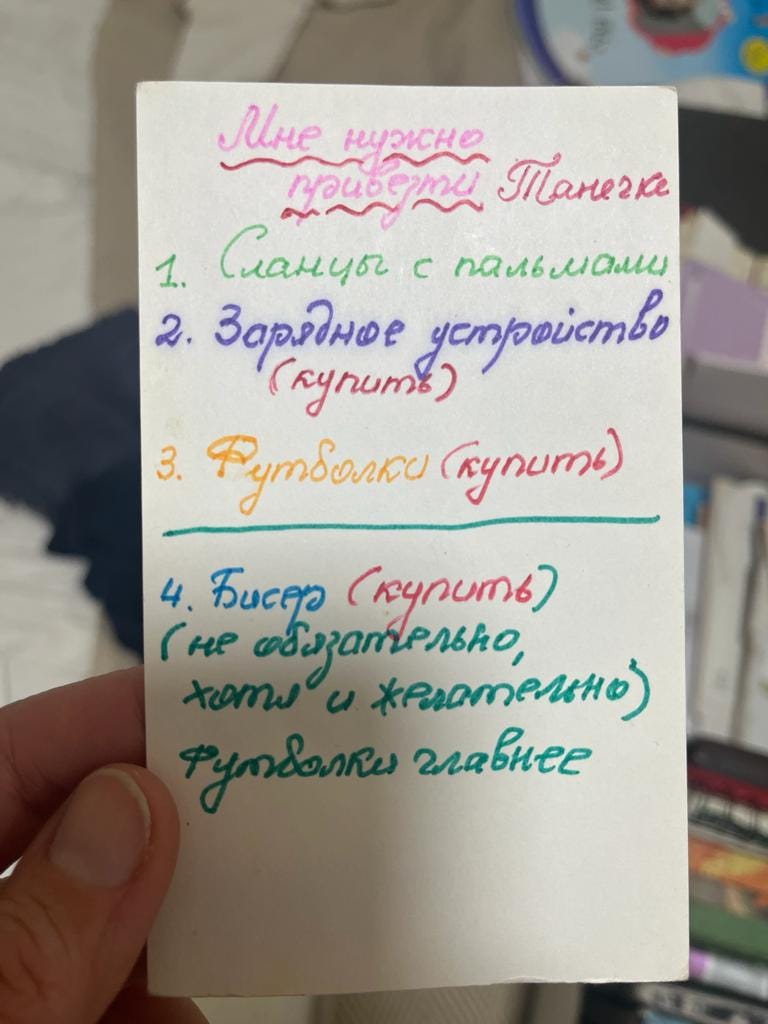 Мне нужно
привезти Танечке
1. Сланцы с пальмами
2. Зарядное устройство
(купить)
3. Футболки (купить)
4. Бисер (купить)
(не обязательно,
хотя и желательно)
Футболки главнее